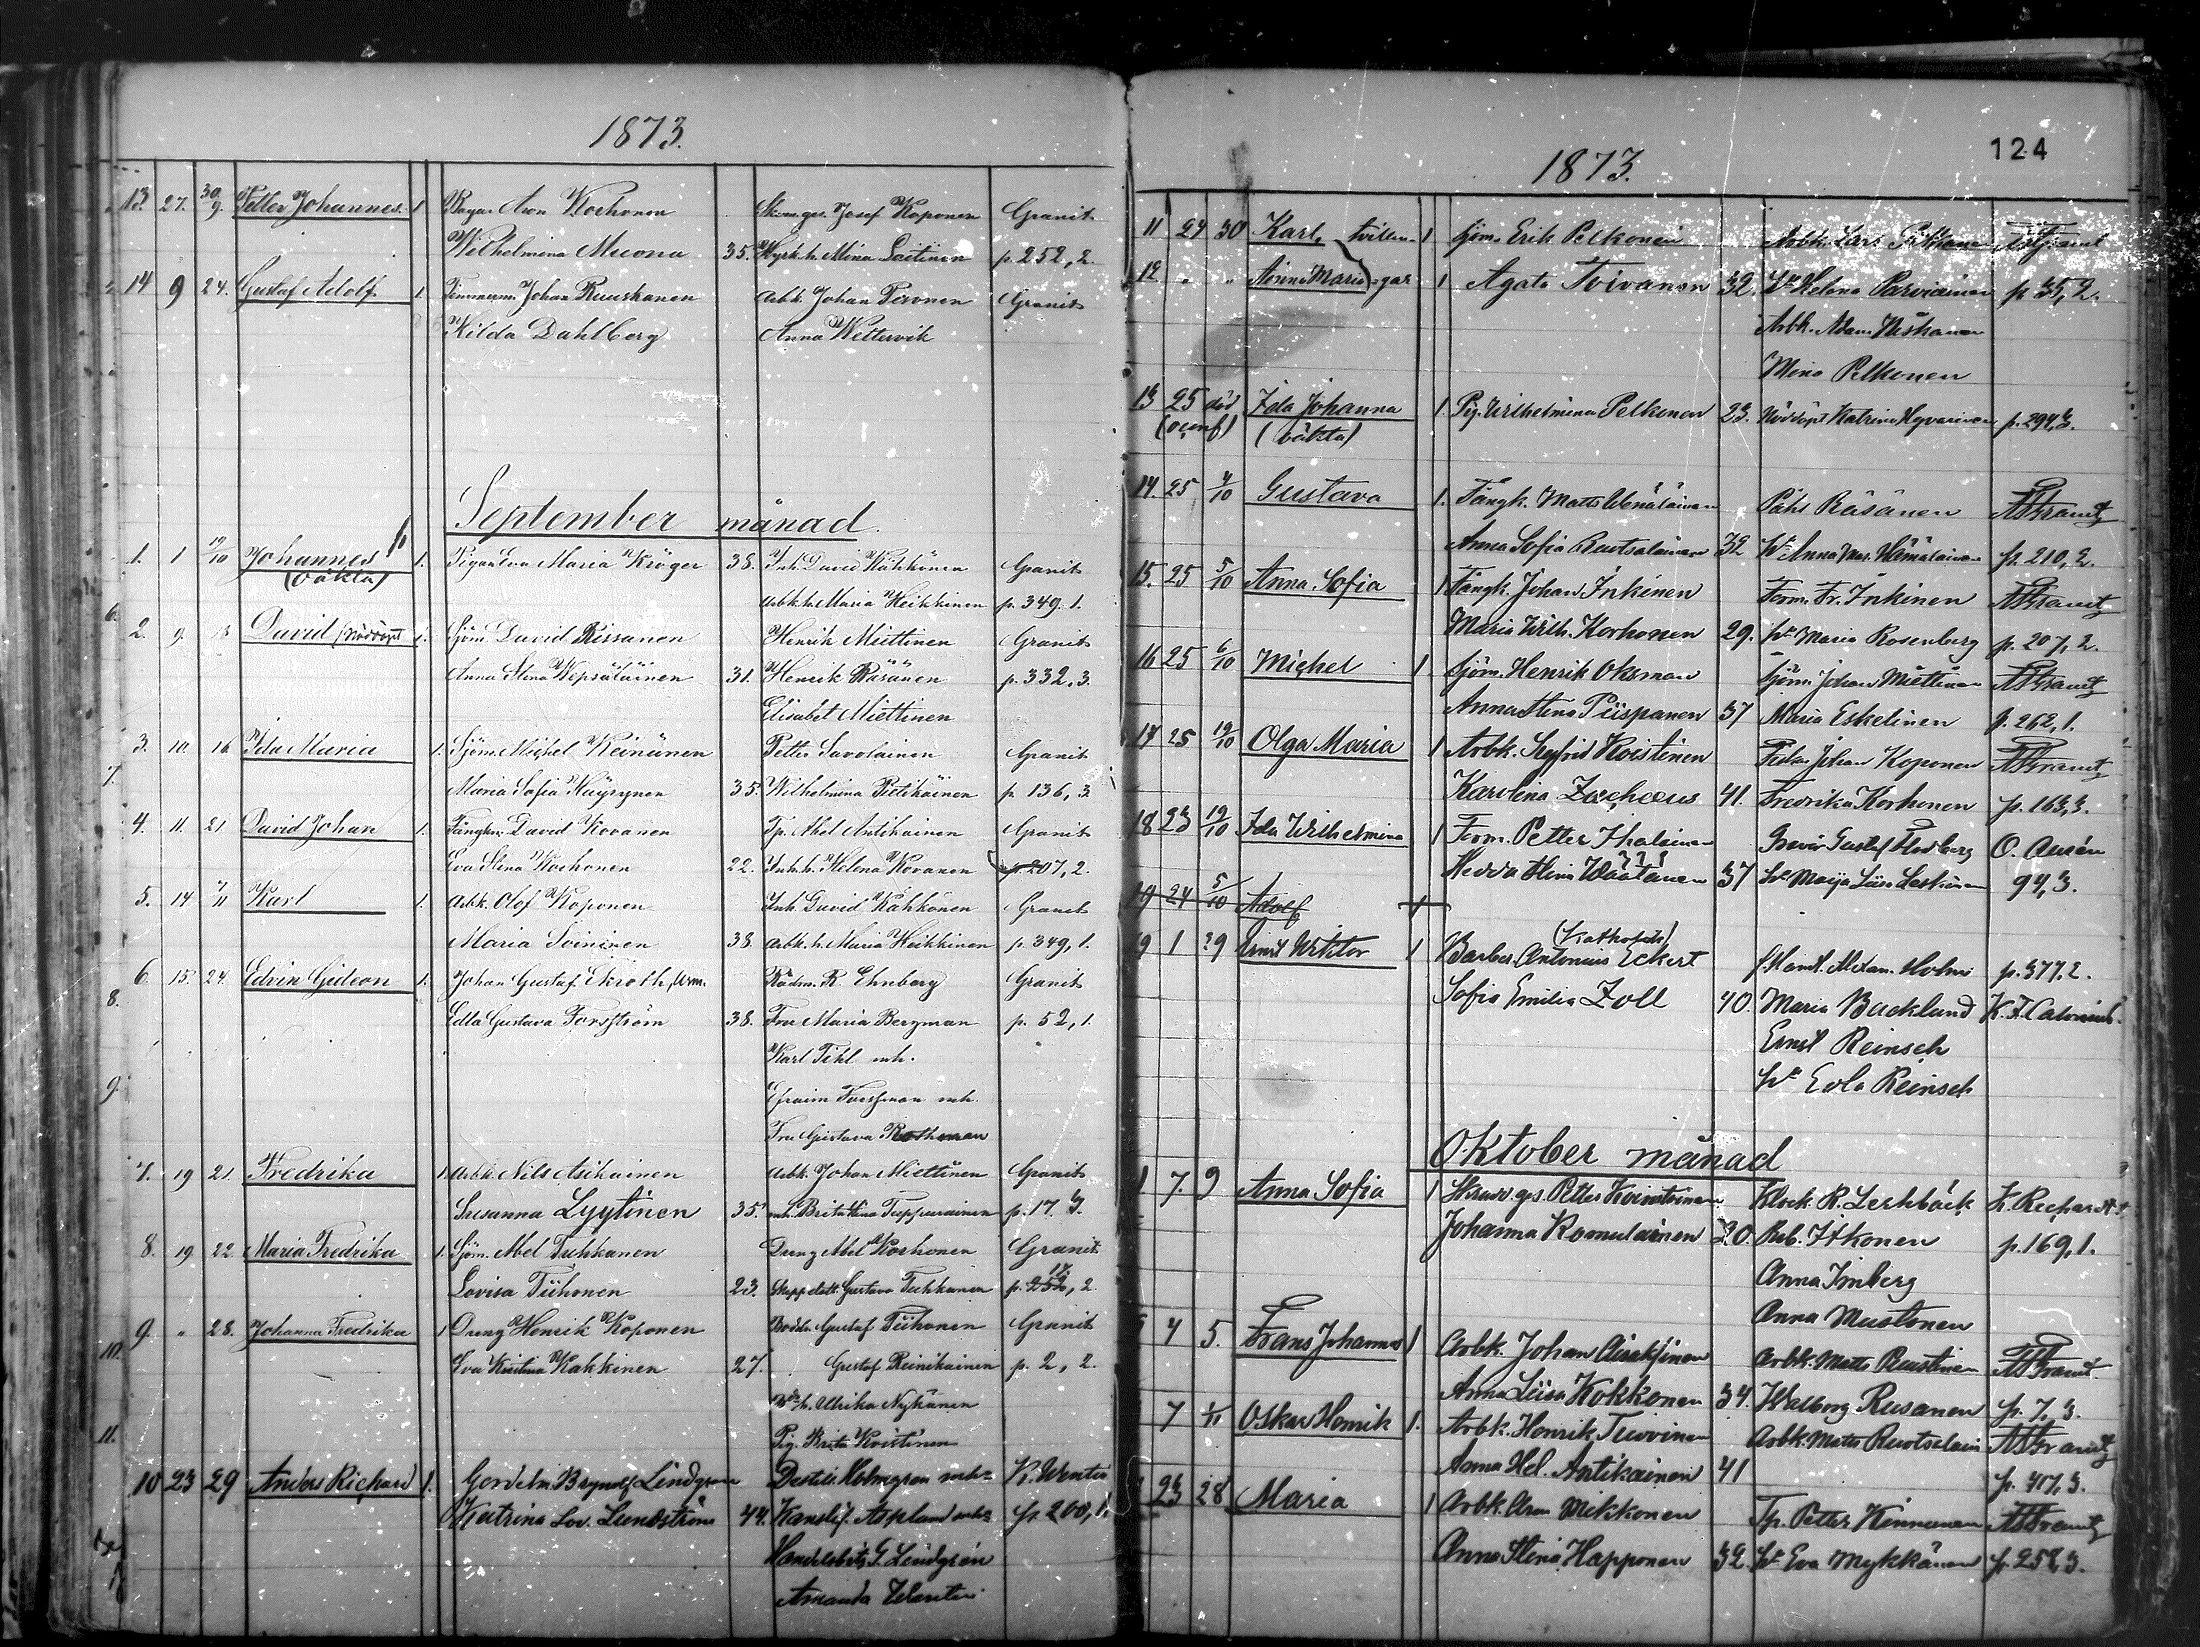 1873.
13. 27. 30/9. Petter Johannes. 1 Aron Korhonen Josef Koponen Granit
Wilhelmina Muona 35. Mina Loitinen p. 252, 2.
14 9 24. Gustaf Adolf 1 Timmerm. Johan Ruuskanen Arbk. Johan Parvnen Granit
Hilda Dahlberg Anna Wettervik
September månad.
1. 1 19/10 Johannes 1. Pigan Eva Maria Kröger 38. Inh. David Kähkönen Granit
(oäkta) Arbk. h. Maria Heikkinen p. 349. 1.
2. 9. David (Nöddöpt) 1. Sjöm. David Rissanen Henrik Miettinen Granit
Anna Stina Wepsäläinen 31. Henrik Räsänen p. 332, 3.
Elisabet Miettinen
3. 10. 16 Ida Maria 1. Sjöm. Michel Keinänen Petter Savolainen Granit
Maria Sofia Käyrynen 35. Wilhelmina Pitikäinen p. 136, 3
4. 11. 21. David Johan 1. David Kovanen Tp. Abel Antikainen Granit
Eva Stina Korhonen 22. Inh. h. Helena Kovanen p. 207, 2.
5. 14 7/11 Karl 1. Arbk. Olof Koponen Inh. David Kähkönen Granit
Maria Soininen 38. Arbk. h. Maria Heikkinen p. 349, 1.
6. 15. 24. Edvin Gideon 1. Johan Gustaf Ekroth, Rådm. R. Ehnberg Granit
Edla Gustava Forsström 38. Fru Maria Bergman p. 52, 1.
Karl Tihl mh.
Efraim Forssman mh.
Fru Gustava Rothman
7. 19 21. Fredrika 1 Arbk. Nils Asikainen Arbk. Johan Miettinen Granit
Susanna Lyytinen 35. Brita Stina Tuppurainen p. 17. 3.
8. 19 22. Maria Fredrika 1. Sjöm. Abel Tuhkanen Dräng Abel Korhonen Granit
Lovisa Tiihonen 23. Gustava Tuhkanen p. 252, 2
9. " 28. Johanna Fredrika 1 Dräng Henrik Koponen Gustaf Tiihonen Granit
Eva Kristina Kakkinen 27. Gustaf Reinikainen p. 2, 2.
Ulrika Nykänen
Pig. Brita Koistinen
10 23 29 Anders Richard 1. Brynolf Lindgren Holmgren K. Wentin
Katrina Lov. Lundström 44. Kanslif. Asplund p. 200, 1.
G. Lindgren
Amanda
124
1873.
11 24 30 Karl, tvillin- 1 Sjöm. Erik Pelkonen Arbk. Lars
12 " " Anna Maria gar 1 Agata Toivanen 32. Hr Helena Parviainen p. 35, 2.
Arbk. Adam
Mina Pelkonen
13 25 död Ida Johanna 1. Pig. Wilhelmina Pelkonen 23. Nöddöpt Katrina Hyvärinen p. 294, 3.
(oäkta)
14. 25 4/10 Gustava 1. Fångk. Matts Pähl Räsänen A Granit
Anna Sofia Ruotsalainen 32 Hr Anna Mar. Hämäläinen p. 210, 2.
15. 25 5/10 Anna Sofia 1 Fångk. Johan Inkinen Form. Fr. Inkinen A Granit
Maria Wilh. Korhonen 29. Hr Maria Rosenberg p. 207, 2.
16 25 6/10 Michel 1 Sjöm. Henrik Oksman Sjöm. Johan Miettinen A Granit
Anna Stina Piispanen 37 Maria Eskelinen p. 262, 1.
17 25 19/10 Olga Maria 1 Arbk. Segfrid Koistinen Johan Koponen A Granit
Karolina Zacheus 41. Fredrika Korhonen p. 163, 3.
18 23 19/10 Ida Wilhelmina 1 Form. Petter Ihalainen Gustaf Flodberg O. Ausén
Hedda Stina Väätänen 37 Hr Maija Liisa 94, 3.
19 24 5/10 Adolf 1
19 1 29 Ernst Wiktor 1 Barber. Antonius Eckert (Katholik) Alexan. Holm p. 377, 2.
Sofia Emilia Zoll 40. Maria Backlund K. F. Calonius.
Ernst Reinsch
Hr Evla Reinsch
Oktober månad
1 7. 9 Anna Sofia 1 Skrudd. ges. Petter Klock. R. Lerhbäck K. Rechardt
Johanna Romulainen 30. Rub. Itkonen p. 169, 1.
Anna Imberg
Anna Mustonen
4 5. Frans Johannes 1 Arbk. Johan Airaksinen Arbk. Matts A Granit
Anna Liisa Kokkonen 34. Walborg Rusanen p. 7, 3.
7 1/11 Oskar Henrik 1. Arbk. Henrik Tuovinen Arbk. Matts A Granit
Anna Hel. Antikainen 41 p. 417, 3.
23 28 Maria 1 Arbk. Aron Mikkonen Tp. Petter Kinnunen A Granit
Anna Stina Happonen 32. Hr Eva Mykkänen p. 258, 3.